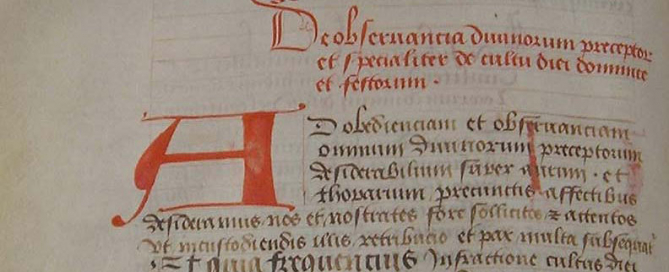 De observancia divinorum preceptor
et specialiter de cultu diei dominice
et festorum .
Ad obedienciam et observanciam
omnium divinorum preceptorum
desiderabilium super aurum . et
thopazium precunctis affectibus
desideramus nos et nostrates fore sollicitos et attentos
Ut in custodiendis illis retribucio et pax multa subsequatur
Et quia frequencius Infractione cultus diei